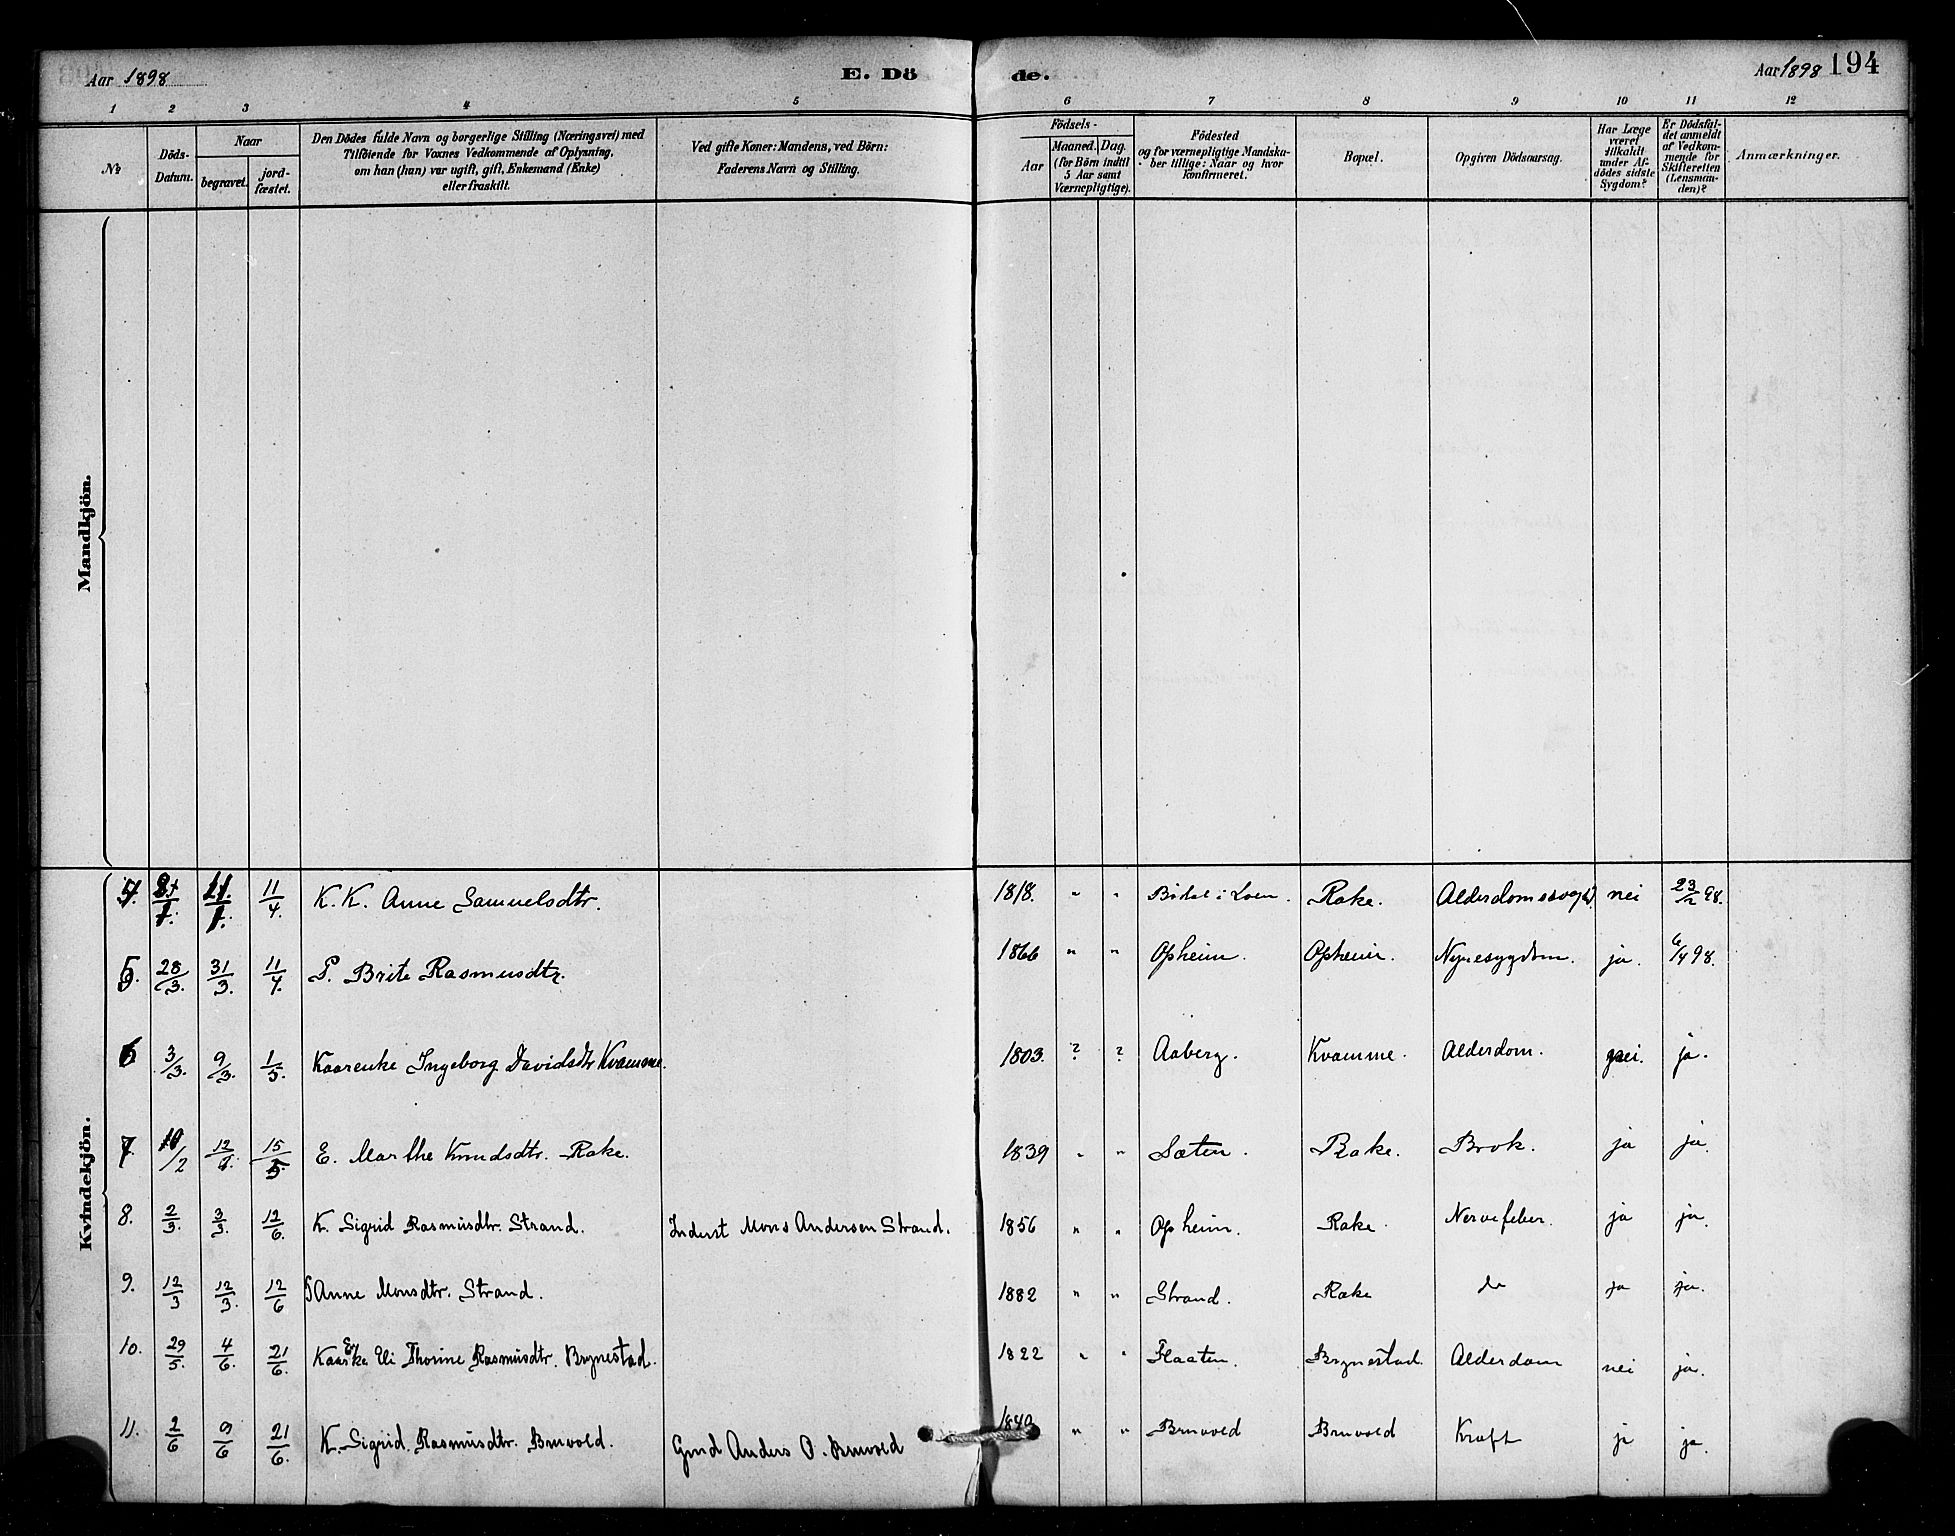 Aar 1898
E. Dö
de.
Aar 1898 194
1 2 3 4 5 6 7 8 9 10 11 12
№
Döds-
Datum.
Naar
begravet.
jord-
fæstet.
Den Dödes fulde Navn og borgerlige Stilling (Næringsvei) med
Tilföiende for Voxnes Vedkommende af Oplysning,
om han (hun) var ugift, gift, Enkemand (Enke)
eller fraskilt.
Ved gifte Koner: Mandens, ved Börn:
Faderens Navn og Stilling.
Födsels-
Aar
Maaned. Dag.
(for Börn indtil
5 Aar samt
Værnepligtige).
Födested
og for værnepligtige Mandska-
ber tillige: Naar og hvor
konfirmeret.
Bopæl.
Opgiven Dödsaarsag.
Har Læge
været
tilkaldt
under Af-
dödes sidste
Sygdom?
Er Dödsfal-
det anmeldt
af Vedkom-
mende for
Skifteretten
(Lensman-
den)?
Anmærkninger.
Mandkjön.
Kvindekjön.
4. 11/4. K. K. Anne Samuelsdtr. 1818. " " Bödal i Loen. Rake. nei 98.
5. 28/3. 31/3. 11/4. P. Brite Rasmusdtr. 1866 " " Opheim. Opheim. Nyresygdom. ja. 6/4 98.
6 3/3. 9/3. 1/5. Kaarenke Ingeborg Davidsdtr Kvamme. 1803. ? ? Aaberg. Kvamme. Alderdom. nei. ja.
7. 10/2 15/5 E. Marthe Knudsdtr. Rake. 1839 " " Sæten. Rake. Brok. ja ja.
8. 2/3. 3/3. 12/6. K. Sigrid Rasmusdtr. Strand. Inderst Mons Andersen Strand. 1856 " " Opheim. Rake. Nervefeber. ja ja.
9. 12/3 12/3. 12/6 Anne Monsdtr. Strand. 1882 " " Strand. Rake do ja ja.
10. 29/5. 4/6. 21/6. Eli Thorine Rasmusdtr. Brynestad. 1822 " " Flaaten. Brynestad. Alderdom nei ja.
11. 2/6 9/6 21/6. K. Sigrid Rasmusdtr. Bruvold. Gmd Anders O. Bruvold 1840 " " Bruvold Bruvold Kræft ja ja.